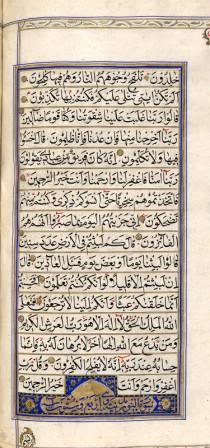 خلدون تلفح وجوههم النار وهم فيها كلحون
الم تكن ايتي تتلى عليكم فكنتم بها تكذبون
قالوا ربنا غلبت علينا شقوتنا وكنا قوما ضالين
ربنا اخرجنا منها فان عدنا فانا ظلمون قال اخسؤا
فيها ولا تكلمون انه كان فريق من عبادي يقولون
ربنا امنا فاغفر لنا وارحمنا وانت خير الرحمين
فاتخذتموهم سخريا حتى انسوكم ذكري وكنتم منهم
تضحكون اني جزيتهم اليوم بما صبروا انهم هم
الفائزون قال كم لبثتم في الارض عدد سنين
قالوا لبثنا يوما او بعض يوم فسئل العادين قال
ان لبثتم الا قليلا لو انكم كنتم تعلمون افحسبتم
انما خلقنكم عبثا وانكم الينا لا ترجعون فتعلى
الله الملك الحق لا اله الا هو رب العرش الكريم
ومن يدع مع الله الها اخر لا برهان له به فانما
حسابه عند ربه انه لا يفلح الكفرون وقل رب
اغفر وارحم وانت خير الرحمين